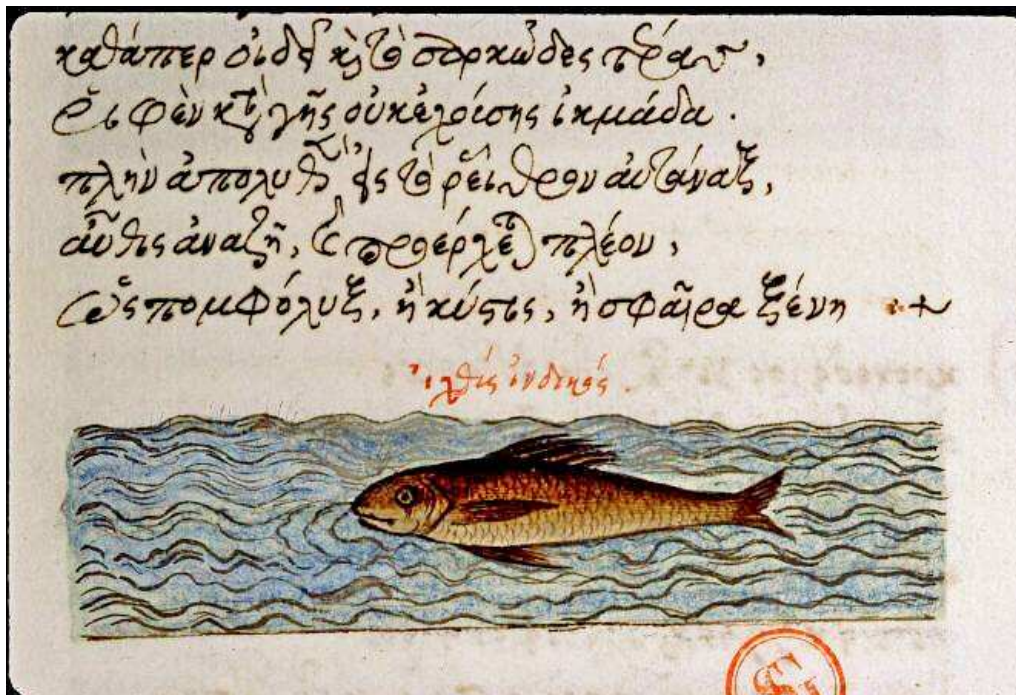 καθάπερ οἰδεῖ καὶ τὸ σαρκῶδες τέρας,
ῥιφὲν κατὰ γῆς οὐκ ἐχούσης ἰκμάδα.
πλὴν ἀπολυθὲν εἰς τὸ ῥεῖθρον αὐτάναξ,
αὖθις ἀναζῇ, καὶ προέρχεται πλέον,
ὡς πομφόλυξ, ἢ κύστις, ἢ σφαῖρα ξένη
ἰχθὺς ἰνδικός.